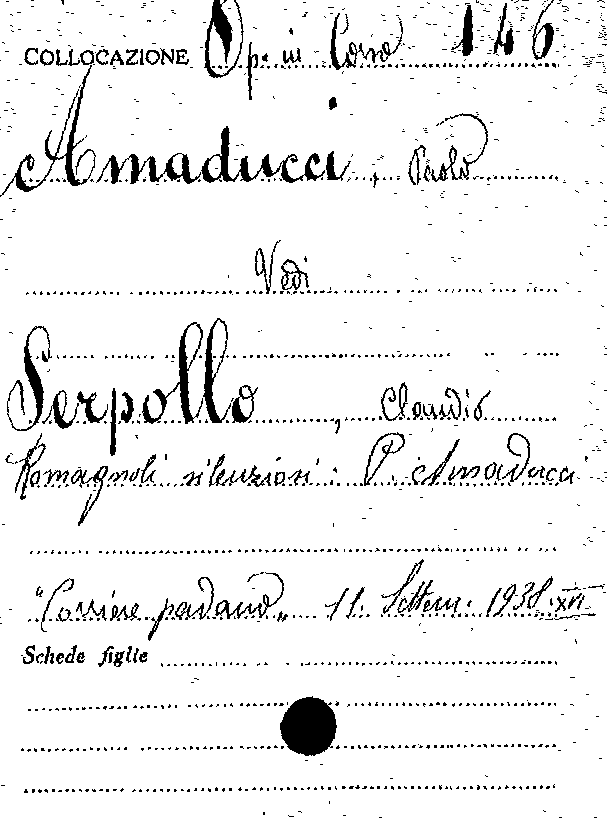 COLLOCAZIONE Op. in Corso 146
Amaducci, Paolo
Vedi
Serpollo, Claudio
Romagnoli silenziosi: P. Amaducci
"Corriere padano„ 11. Settem. 1938.XVI
Schede figlie